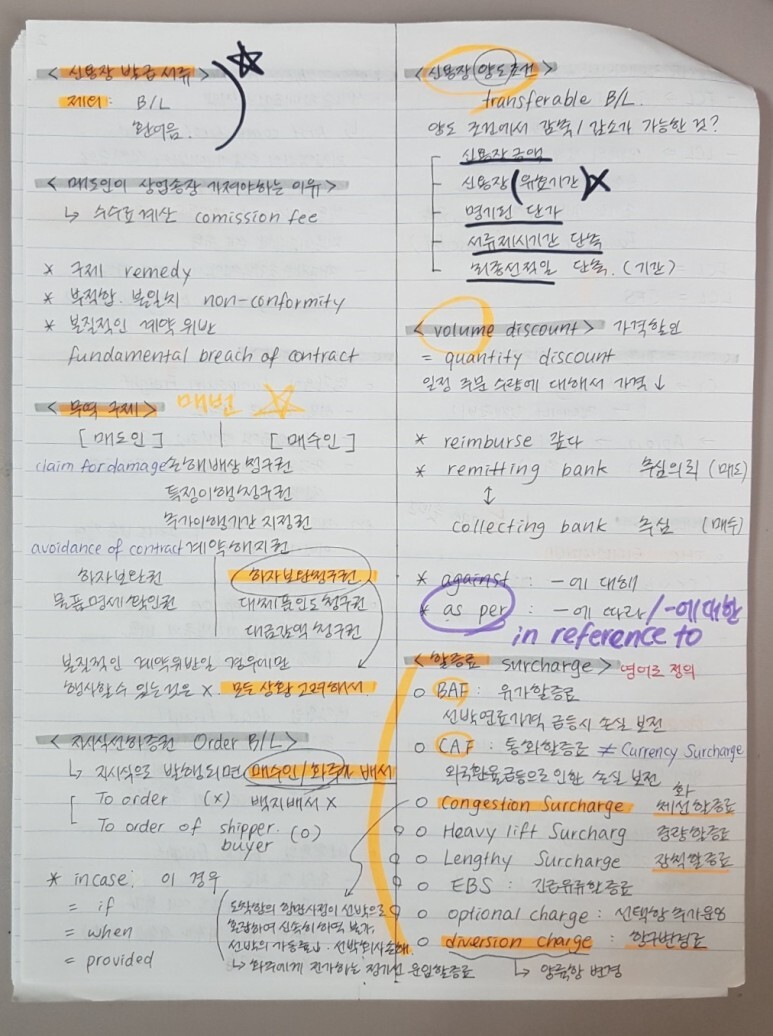 < 신용장 발급 서류 >
제외: B/L
환어음.
< 매도인이 상업송장 가져야하는 이유 >
↳ 수수료계산 comission fee
* 구제 remedy
* 부적합. 불일치 non-conformity
* 본질적인 계약 위반
fundamental breach of contract
< 무역 구제 > 매번 ☆
[ 매도인 ] | [ 매수인 ]
claim for damage 손해배상청구권
특정이행청구권
추가이행기간 지정권
avoidance of contract 계약해지권
하자보완권 하자보완청구권.
물품명세확인권 대체품인도청구권
대금감액청구권
본질적인 계약위반일 경우에만
행사할수 있는것은 x 모든 상황 고려해서.
< 지시식선하증권 Order B/L >
↳ 지시식으로 발행되면 매수인/화주가 배서
To order (x) 백지배서 x
To order of shipper. (o)
buyer
* incase: 이 경우
= if
= when
= provided
도착항의 항만사정이 선박으로
혼잡하여 신속히 하역 불가,
선박의 가동률↓. 선박회사손해.
↳ 화주에게 전가하는 정기선 운임할증료
< 신용장 양도조건 >
transferable B/L.
양도 조건에서 감축 / 감소가 가능한 것?
신용장금액
신용장(유효기간) x
명기된 단가
서류제시기간 단축
최종선적일 단축. (기간)
< volume discount > 가격할인
= quantity discount
일정 주문 수량에 대해서 가격↓
* reimburse 갚다
* remitting bank 추심의뢰 (매도)
↕
collecting bank 추심 (매수)
* against : ー에 대해
* as per : ー에 따라 / ー에 대한
in reference to
< 할증료 surcharge > 영어로 정의
o BAF : 유가할증료
선박연료가격 급등시 손실 보전
o CAF : 통화할증료 ≠ Currency Surcharge
외국환율급등으로 인한 손실 보전
화
o Congestion Surcharge 체선할증료
o Heavy lift Surcharg 중량할증료
o Lengthy Surcharge 장척할증료
o EBS : 긴급유류할증료
o optional charge : 선택항 추가운임
o diversion charge : 항구변경료
↳ 양륙항 변경